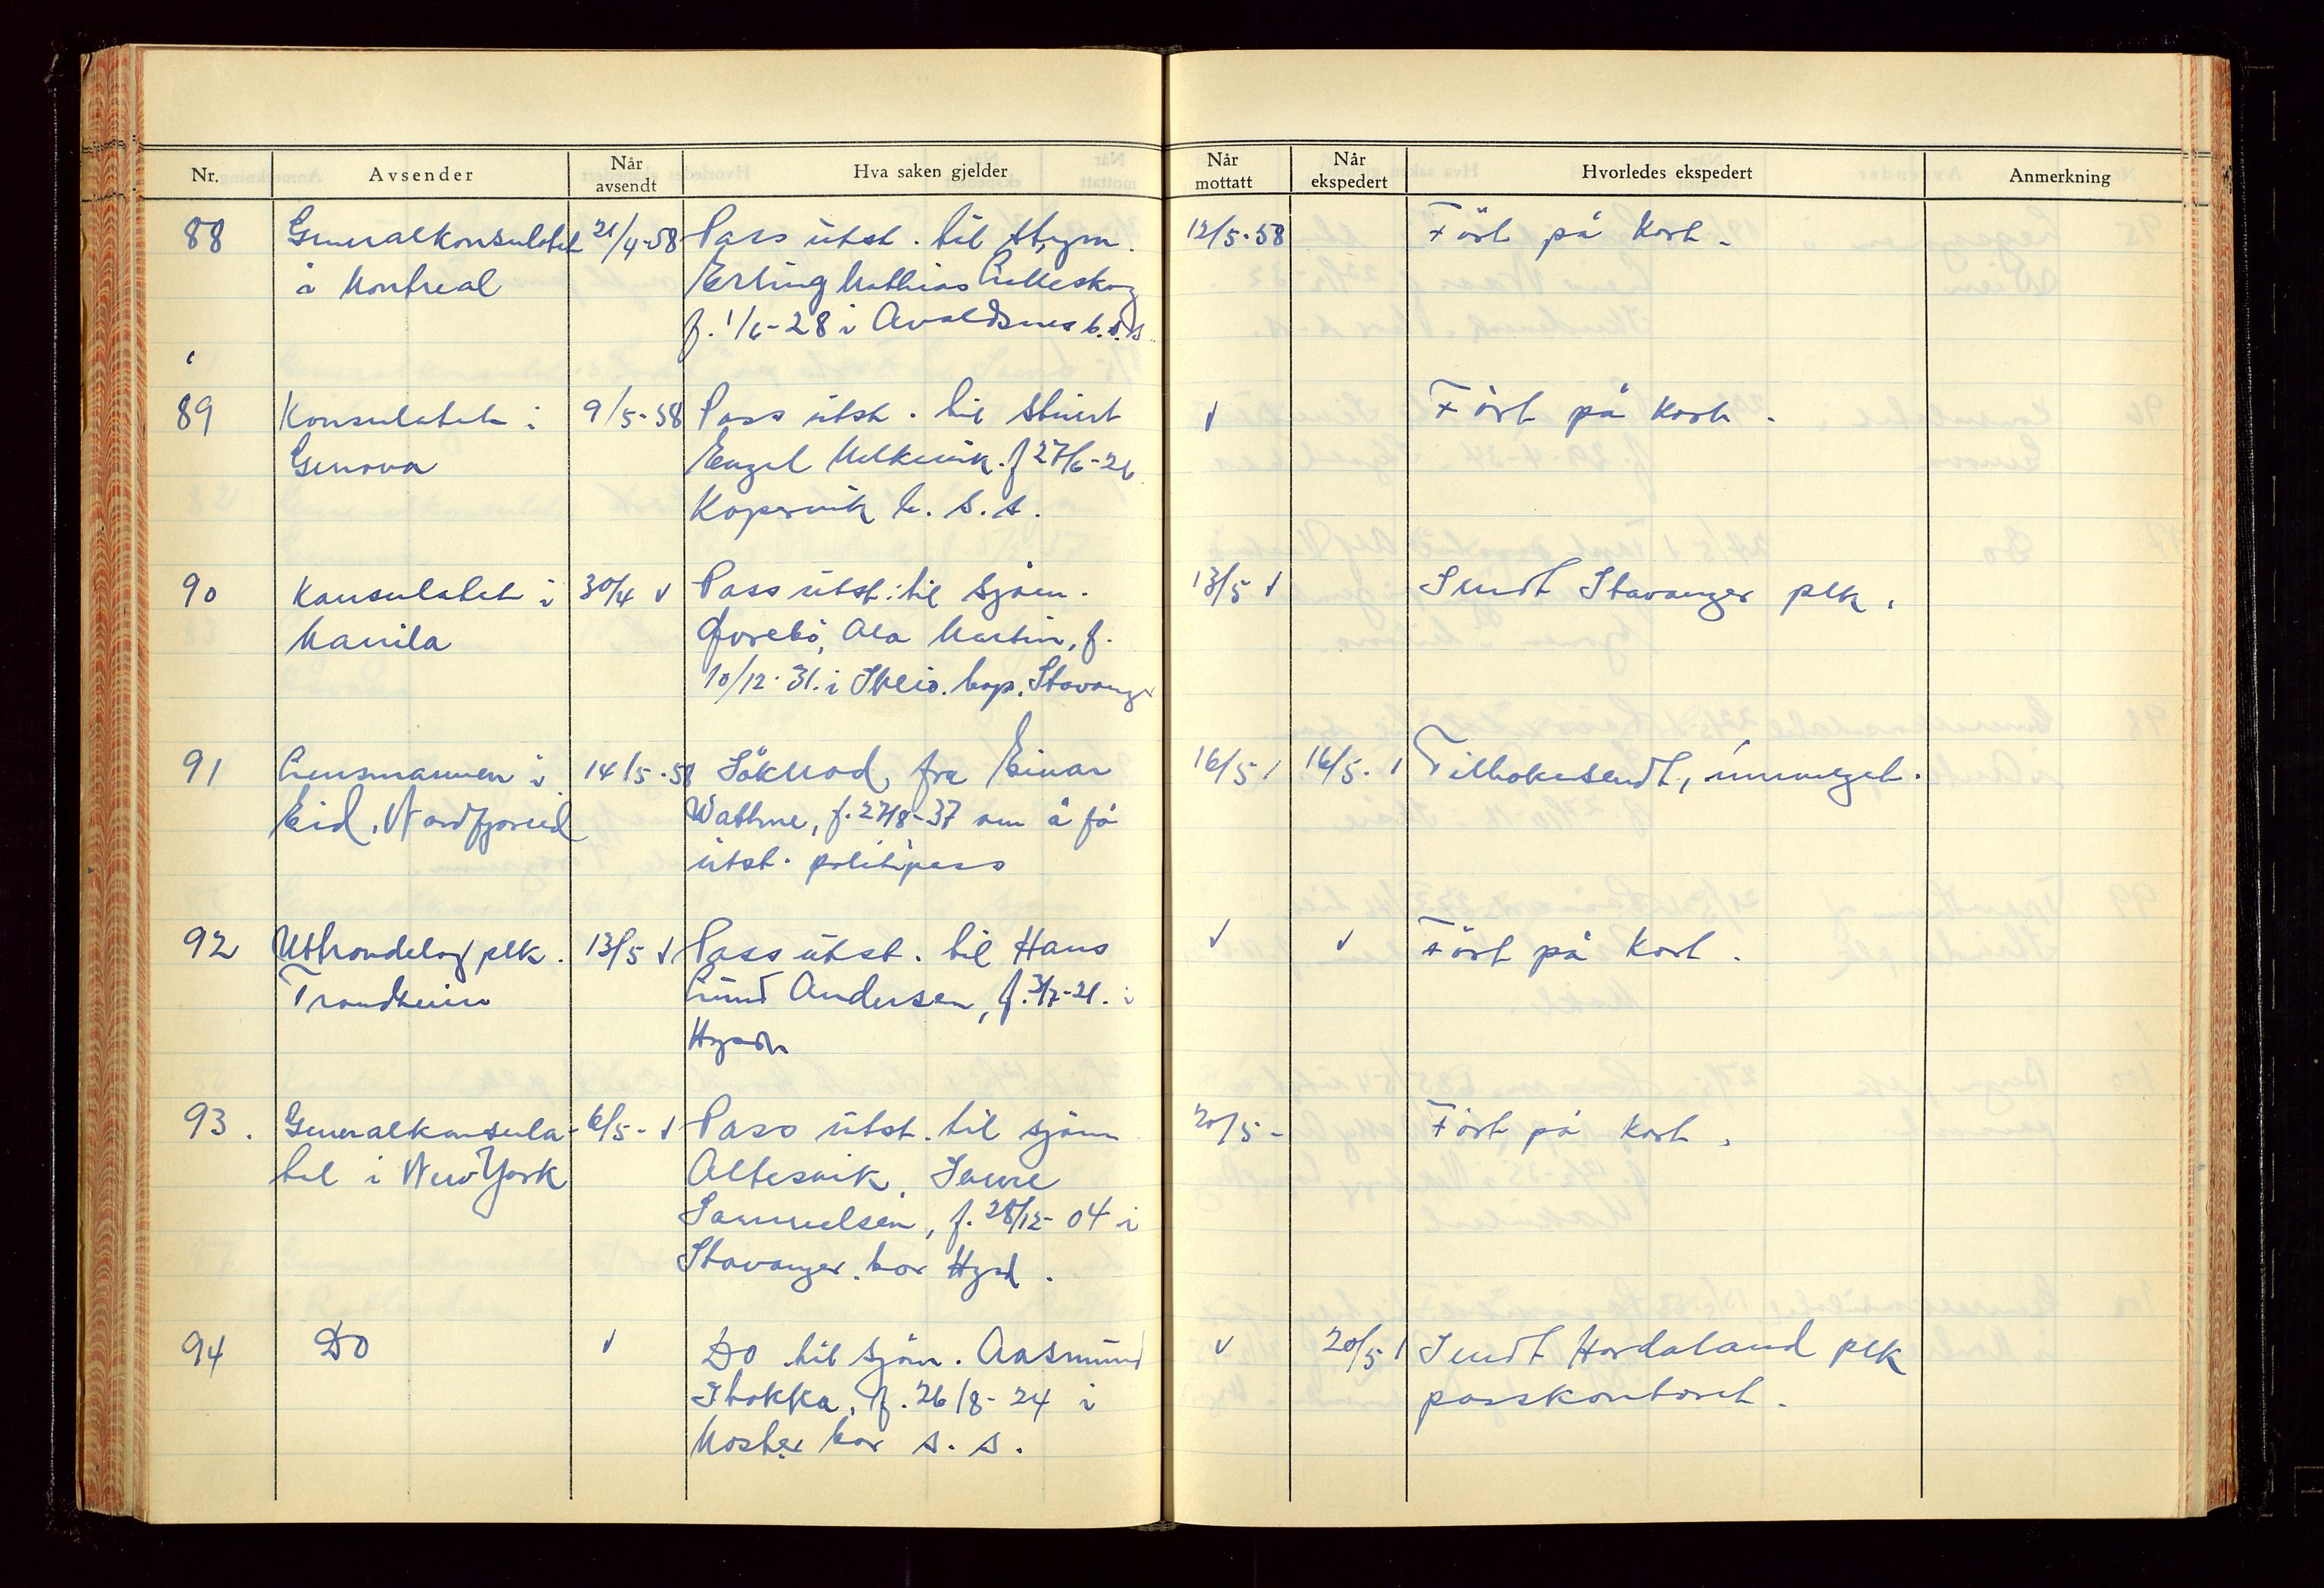 Nr. Avsender Når avsendt Hva saken gjelder Når mottatt Når ekspedert Hvorledes ekspedert Anmerkning
88 Generalkonsulatet 21/4-58 Pass utst. til styrm. 12/5-58 Ført på kort.
i Montreal Erling Mathias
f. 1/6-28 i Avaldsnes b.s.s.
89 Konsulatet i 9/5-58 Pass utst. til stuert √ Ført på kort.
Genova Engel f 27/6-26
Kopervik b.s.s.
90 Konsulatet i 30/4 √ Pass utst. til sjöm. 13/5 √ Sendt Stavanger plk.
Manila Martin, f.
10/12-31. i bop. Stavanger
91 Lensmannen i 14/5-58 Söknad, fra Einar 16/5 √ 16/5. √ Tilbakesendt, innvilget.
Eid, Nordfjoreid Wathne, f. 27/8-37 om å få
utst. politipass
92 Utrondelag plk. 13/5 √ Pass utst. til Hans √ √ Ført på kort.
Trondheim Lund Andersen, f. 3/7-21. i
Hgsd
93. Generalkonsula- 6/5- √ Pass utst. til sjöm 20/5- Ført på kort.
tet i New York Altesvik,
Samuelsen, f. 28/12-04 i
Stavanger. bor Hgsd.
94 Do √ Do til sjöm. Aasmund √ 20/5 √ Sendt Hordaland plk
Stokka, f. 26/8-24 i passkontoret.
Moster bor s.s.